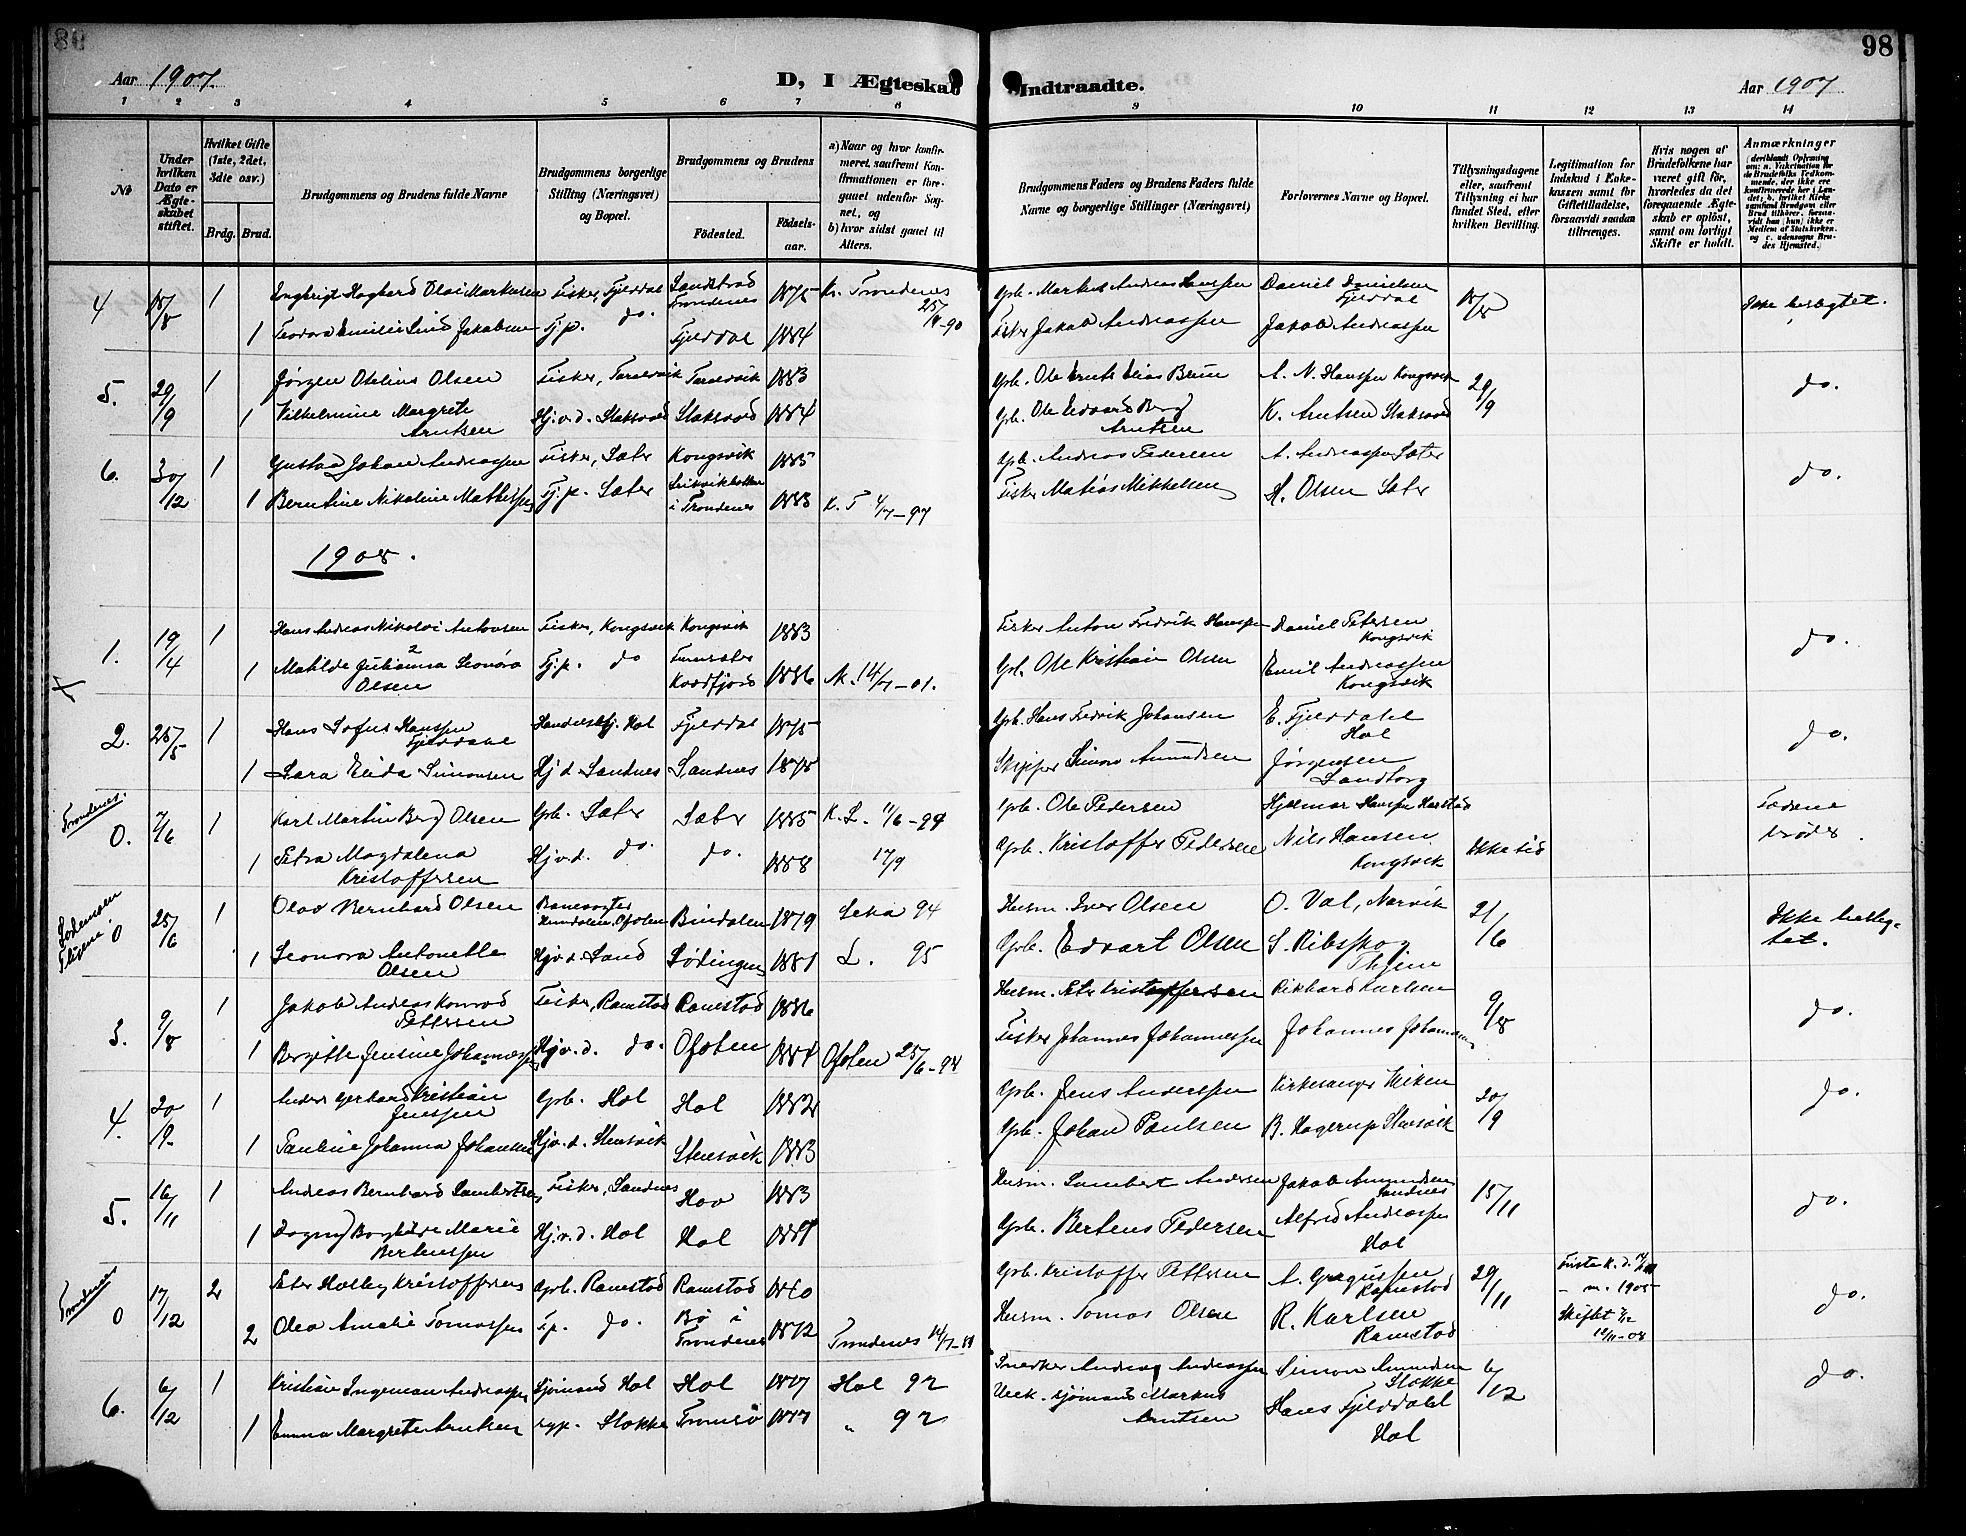 98
Aar 1907.
D, I Ægteskab Indtraadte.
Aar 1907
1 2 3 4 5 6 7 8 9 10 11 12 13 14
No
Under hvilken Dato er Ægteskabet stiftet.
Hvilket Gifte (1ste, 2det, 3die osv.)
Brdg. Brud.
Brudgommens og Brudens fulde Navne
Brudgommens borgerlige Stilling (Næringsvei) og Bopæl.
Brudgommens og Brudens
Fødested.
Fødselsaar.
a) Naar og hvor konfirmeret, saafremt Konfirmationen er foregaaet udenfor Sognet, og
b) hvor sidst gaaet til Alters.
Brudgommens Faders og Brudens Faders fulde Navne og borgerlige Stillinger (Næringsvei)
Forlovernes Navne og Bopæl.
Tillysningsdagene eller, saafremt Tillysning ei har fundet Sted, efter hvilken Bevilling.
Legitimation for Indskud i Enkekassen samt for Giftetilladelse, forsaavidt saadan tiltrænges.
Hvis nogen af Brudefolkene har været gift før, hvorledes da det foregaaende Ægteskab er opløst, samt om lovligt Skifte er holdt.
Anmærkninger
4 18/8 1 Hagbard Olai Markussen Fisker, Fjelddal Sandstrand Trondenes 1875 K. Trondenes 25/9-90 Gbr. Markus Andreas Hanssen Daniel Danielsen Fjeldal 18/8 Ikke beslegtet.
1 Teodora Emilie Jakobsen Tj.p. do. Fjelddal 1884 Fisker Jakob Andreassen Jakob Andreassen
5. 29/9 1 Jørgen Otelius Olsen Fisker, Taraldsvik Taraldsvik 1883 Gbr. Ole Elias Bruun A. N. Hanssen Kongsvik 29/9 do.
1 Vilhelmine Margrete Arntsen Hj.v.d. Staksvold Staksvold 1884 Gbr. Ole Edvard Berg Arntsen K. Arntsen Staksvold
6. 30/12 1 Gustav Johan Andreassen Fisker, Sæter Kongsvik 1885 Gbr. Andreas Pedersen A. Andreassen Sæter do.
1 Berntine Nikoline Mathissen Tj.p. Sæter i Trondenes 1883 K. T 4/7-97 Fisker Matias Mikkelsen H. Olsen Sæter
1908.
1. 19/4 1 Hans Andreas Nikolai Antonsen Fisker, Kongsvik Kongsvik 1883 Fisker Anton Fredrik Hanssen Daniel Petersen Kongsvik do.
1 Matilde Julianna Leonora Olsen Tj.p. do Kvædfjord 1886 K. 14/7-01. Gbr. Ole Kristian Olsen Emil Andreassen Kongsvik
2. 25/5 1 Hans Sofus Hanssen Fjelddahl Handelsbtj. Hol Fjelddal 1875 Gbr. Hans Fredrik Johansen E. Fjelddahl Hol do.
1 Sara Elida Simonsen Hj.d. Sandnes Sandnes 1875 Skipper Simon Amundsen Jørgensen Sandtorg
Trondenes. 0. 7/6 1 Karl Martin Berg Olsen Gbr. Sæter Sæter 1885 K. L. 11/6-99 Gbr. Ole Pedersen Hjalmar Hanssen Harstad Fædrene brødre.
1 Petra Magdalena Kristoffersen Hj.v.d. do. do. 1888 17/9 Gbr. Kristoffer Pedersen Nils Hansen Kongsvik Ikke tid
0 25/6 1 Olav Bernhard Olsen Banevogter Hundalen, Ofoten Bindalen 1879 Leka 94 Husm. Iver Olsen O. Val, Narvik 21/6 Ikke beslegtet.
1 Leonora Antonette Olsen Hjv.d. Sand Lødingen 1881 L. 95 Gbr. Edvart Olsen S. Ribsskog
3. 9/8 1 Jakob Andreas Konrad Pettersen Fisker, Ramstad Ramstad 1886 Husm. Peter Kristoffersen Rikhard Karlsen 9/8 do.
1 Bergitte Jensine Johannessen Hjv.d. do. Ofoten 1884 Ofoten 25/6-98 Fisker Johannes Johannessen Johannes Johannessen
4. 20/9 1 Anders Gerhard Kristian Jenssen Gbr. Hol Hol 1882 Gbr. Jens Anderssen Kirkesanger Heiken 20/9 do.
1 Pauline Johanna Johansen Hjv.d. Stensvik Stensvik 1883 Gbr. Johan Paulsen B. Hagerup Stensvik
5. 16/11 1 Andreas Bernhard Lambertsen Fisker, Sandnes Hov 1883 Husm. Lambert Andersen Jakob Amundsen Sandnes 15/11 do.
1 Dagny Borghilde Marie Bertenssen Hj.v.d. Hol Hol 1889 Gbr. Bertens Pedersen Alfred Andreassen Hol
Trondenes 0 17/12 2 Peter Holberg Kristoffersen Gbr. Ramstad Ramstad 1860 Gbr. Kristoffer Pettersen A. Gregussen Ramstad 29/11 Skiftet do.
2 Olea Amalie Tomassen Tj.p. do. Bø i Trondenes 1872 Trondenes 14/7-88 Husm. Tomas Olsen R. Karlsen Ramstad
6. 6/12 1 Kristian Ingeman Andreassen Sjømand Hol Hol 1877 Hol 92 Snedker Andreas Andreassen Simon Amundsen Stokke 6/12 do.
1 Emma Margrete Arntsen syp. Stokke Tromsø 1877 " 92 Sjømand Markus Arntsen Hans Fjelddahl Hol